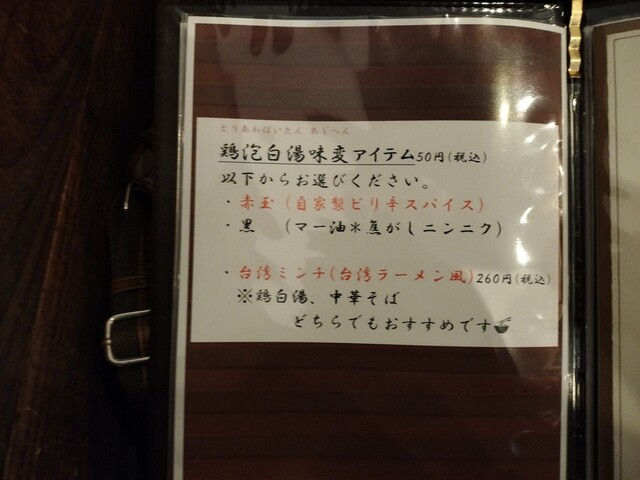 とりあわぱいたん あじへん
鶏泡白湯味変アイテム50円(税込)
以下からお選びください。
・赤玉 (自家製ピリ辛スパイス)
・黒 (マー油※焦がしニンニク)
・台湾ミンチ(台湾ラーメン風)260円(税込)
※鶏白湯、中華そば
どちらでもおすすめです